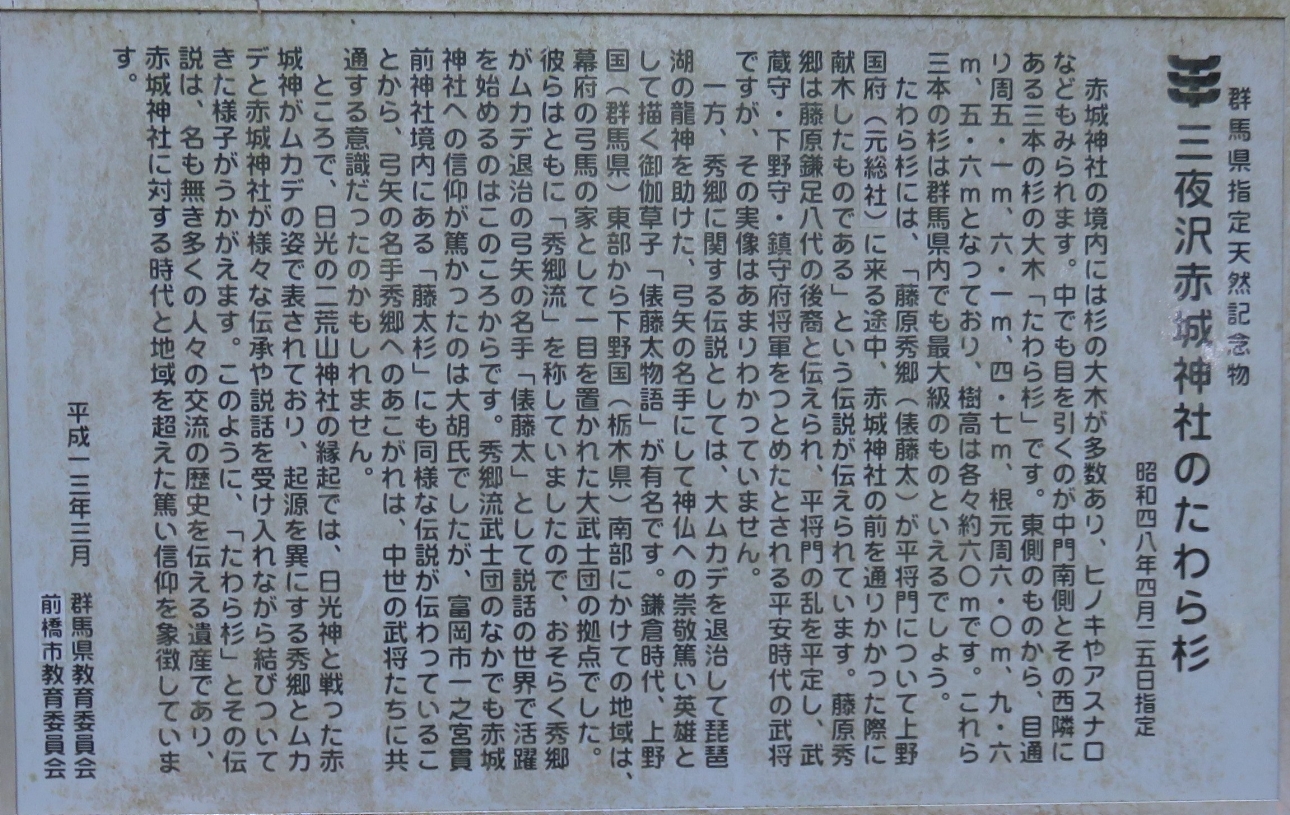 群馬県指定天然記念物
三夜沢赤城神社のたわら杉
昭和四八年四月二五日指定
赤城神社の境内には杉の大木が多数あり、ヒノキやアスナロ
などもみられます。中でも目を引くのが中門南側とその西隣に
ある三本の杉の大木「たわら杉」です。東側のものから、目通
り周五・一m、六・一m、四・七m、根元周六・〇m、九・六
m、五・六mとなっており、樹高は各々約六〇mです。これら
三本の杉は群馬県内でも最大級のものといえるでしょう。
たわら杉には、「藤原秀郷（俵藤太）が平将門について上野
国府（元総社）に来る途中、赤城神社の前を通りかかった際に
献木したものである」という伝説が伝えられています。藤原秀
郷は藤原鎌足八代の後裔と伝えられ、平将門の乱を平定し、武
蔵守・下野守・鎮守府将軍をつとめたとされる平安時代の武将
ですが、その実像はあまりわかっていません。
一方、秀郷に関する伝説としては、大ムカデを退治して琵琶
湖の龍神を助けた、弓矢の名手にして神仏への崇敬篤い英雄と
して描く御伽草子「俵藤太物語」が有名です。鎌倉時代、上野
国（群馬県）東部から下野国（栃木県）南部にかけての地域は、
幕府の弓馬の家として一目を置かれた大武士団の拠点でした。
彼らはともに「秀郷流」を称していましたので、おそらく秀郷
がムカデ退治の弓矢の名手「俵藤太」として説話の世界で活躍
を始めるのはこのころからです。秀郷流武士団のなかでも赤城
神社への信仰が篤かったのは大胡氏でしたが、富岡市一之宮貫
前神社境内にある「藤太杉」にも同様な伝説が伝わっているこ
とから、弓矢の名手秀郷へのあこがれは、中世の武将たちに共
通する意識だったのかもしれません。
ところで、日光の二荒山神社の縁起では、日光神と戦った赤
城神がムカデの姿で表されており、起源を異にする秀郷とムカ
デと赤城神社が様々な伝承や説話を受け入れながら結びついて
きた様子がうかがえます。このように、「たわら杉」とその伝
説は、名も無き多くの人々の交流の歴史を伝える遺産であり、
赤城神社に対する時代と地域を超えた篤い信仰を象徴していま
す。
平成一三年三月　群馬県教育委員会
前橋市教育委員会